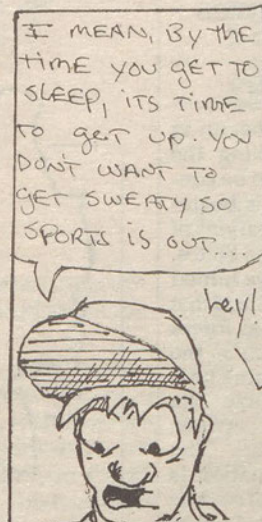 I MEAN, BY THE
TIME YOU GET TO
SLEEP, ITS TIME
TO GET UP. YOU
DONT WANT TO
GET SWEATY SO
SPORTS IS OUT....
hey!